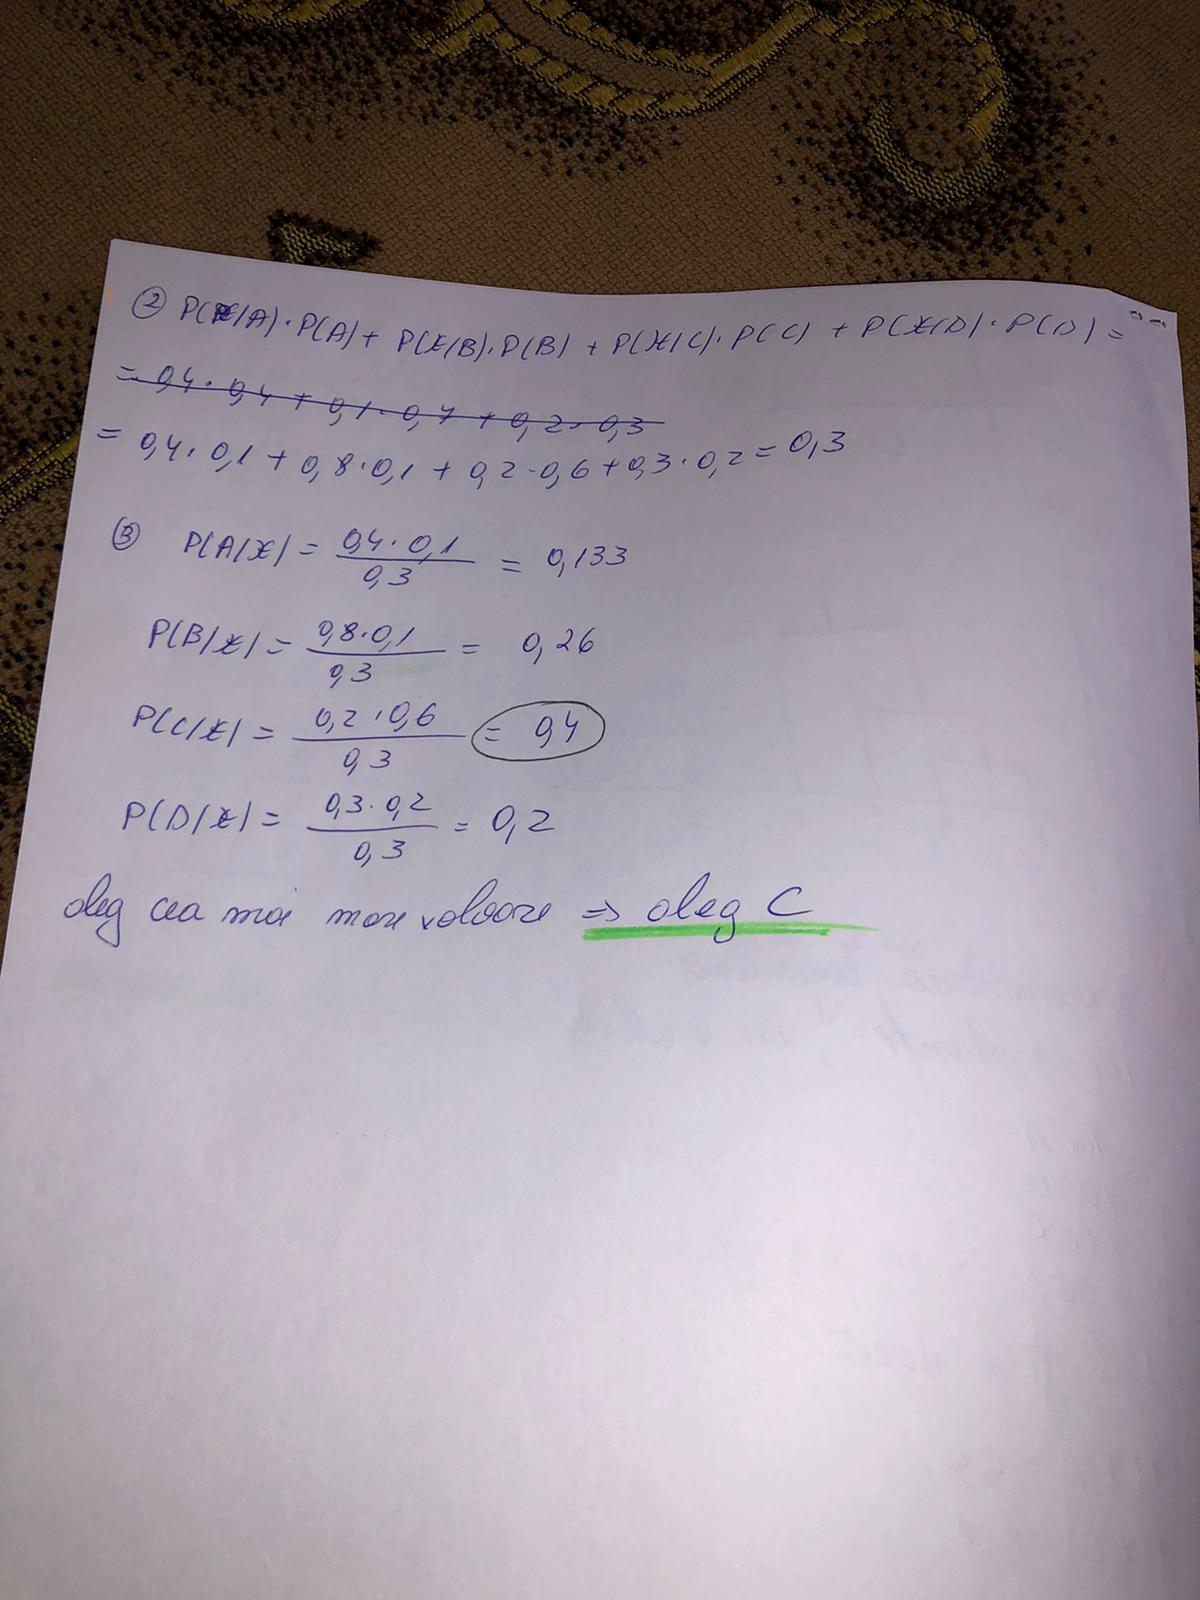 ② P(X/A)·P(A)+ P(X/B)·P(B) + P(X/C)·P(C) + P(X/D)·P(D) =
= 0,4·0,4 + 0,1·0,7 + 0,2·0,3
= 0,4·0,1 + 0,8·0,1 + 0,2·0,6 + 0,3·0,2 = 0,3
③ P(A/X) = 0,4·0,1 / 0,3 = 0,133
P(B/X) = 0,8·0,1 / 0,3 = 0,26
P(C/X) = 0,2·0,6 / 0,3 = 0,4
P(D/X) = 0,3·0,2 / 0,3 = 0,2
aleg cea mai mare valoare => aleg C